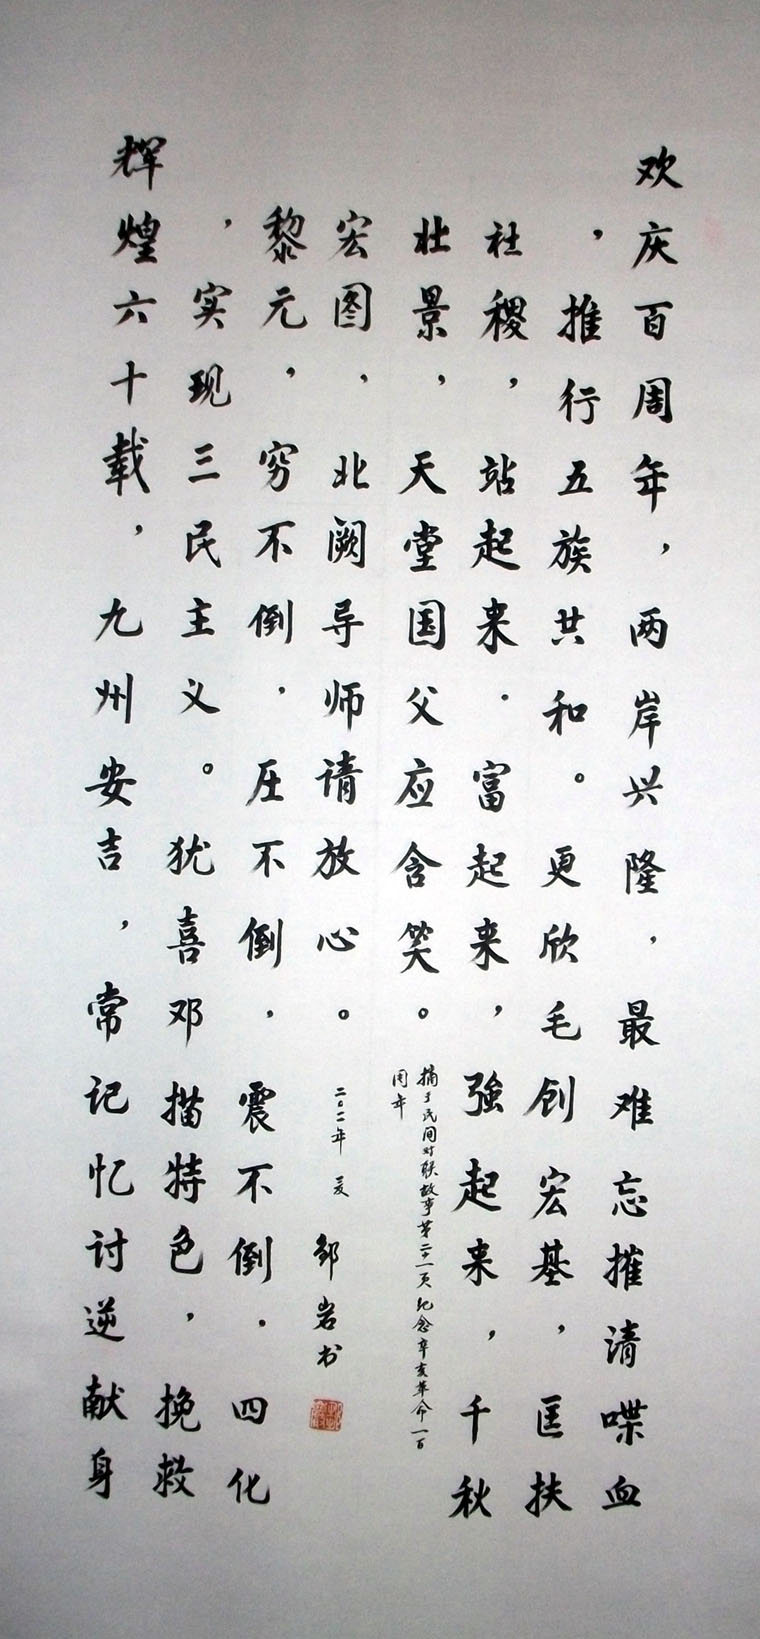 欢庆百周年，两岸兴隆，最难忘摧清喋血
，推行五族共和。更欣毛创宏基，匡扶
社稷，站起来．富起来，強起来，千秋
壮景，天堂国父应含笑。
摘于民间对联故事第页纪念辛亥革命一百
周年
辉煌六十载，九州安吉，常记忆讨逆献身
，实现三民主义。犹喜邓描特色，挽救
黎元，穷不倒．压不倒，震不倒．四化
宏图，北阙导师请放心。
二〇一一年 夏 邹岩书